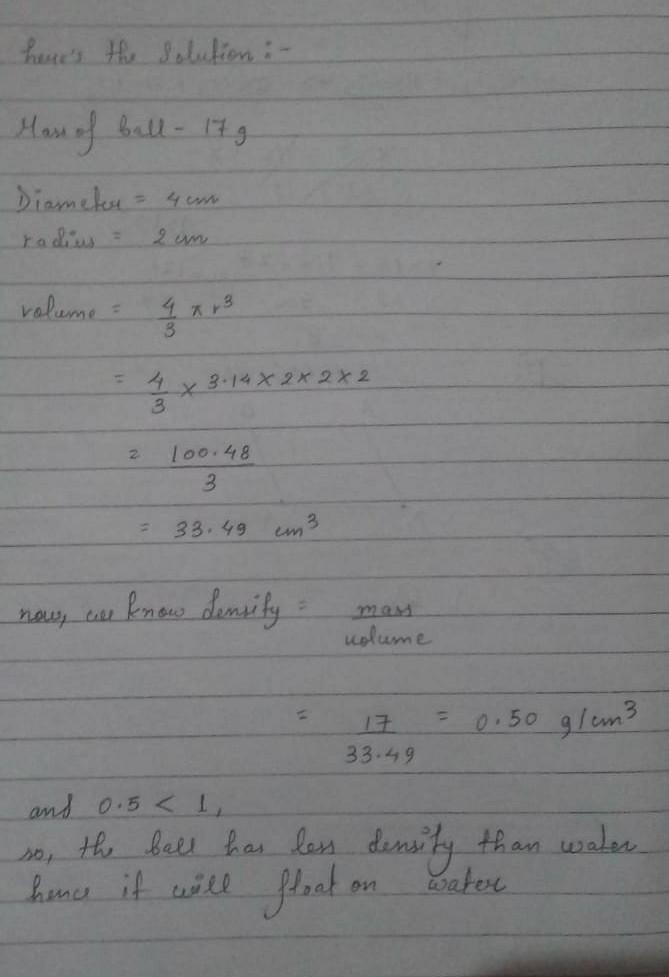 here's the solution :-
Mass of ball - 17 g
Diameter = 4 cm
radius = 2 cm
volume = 4/3 π r³
= 4/3 × 3.14 × 2 × 2 × 2
= 100.48/3
= 33.49 cm³
now, we know density = mass/volume
= 17/33.49 = 0.50 g/cm³
and 0.5 < 1,
so, the ball has less density than water
hence it will float on water